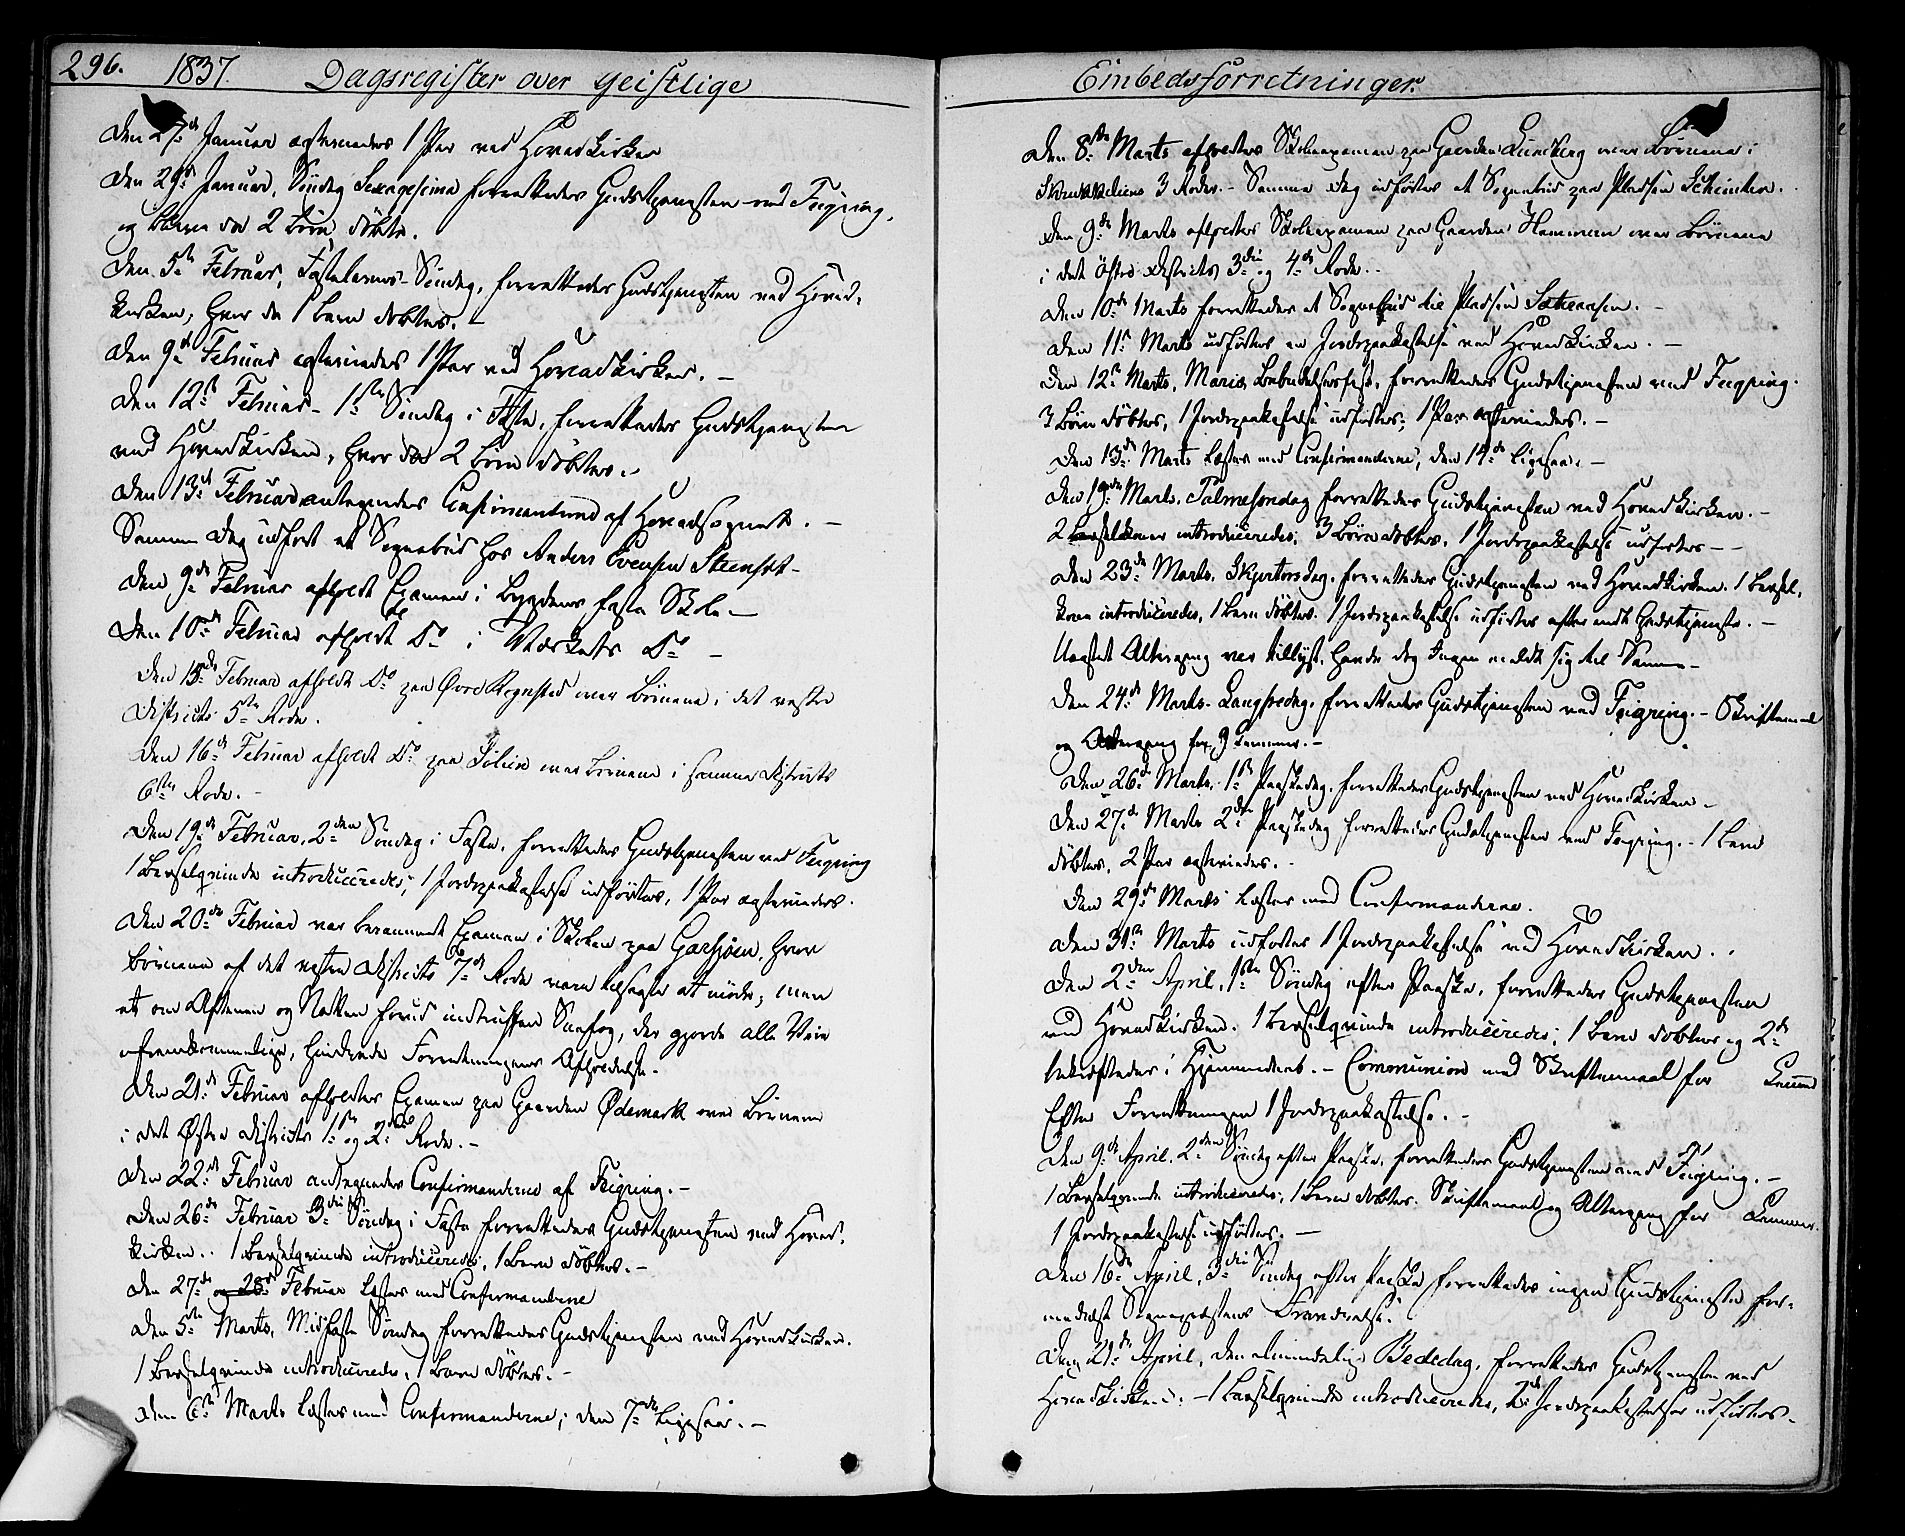 296. 1837. Dagsregister over Geistlige
Den 27de Januar ægteviedes 1 Par ved Hovedkirken
Den 29de Januar, Søndag Sexagesima forrettedes Gudstjenesten ved Feigring,
og bleve da 2 Børn døbte.
Den 5te Februar, Fastelavns-Søndag, forrettedes Gudstjenesten ved Hoved-
kirken, hvor da 1 Barn døbtes. –
Den 9de Februar ægteviedes 1 Par ved Hovedkirken. –
Den 12te Februar – 1ste Søndag i Faste, forrettedes Gudstjenesten
ved Hovedkirken, hvor da 2 Børn døbtes. –
Den 13de Februar antegnedes Confirmanterne af Hovedsognet. –
Samme Dag udført et Sognebud hos Anders Evensen Steensrt –
Den 9de Februar afholdt Examen i Bygdens faste Skole –
Den 10de Februar afholdt Do i Værkets Do –
Den 15de Februar afholdt Do paa Øvre Rognstad over Børnene i det vestre
Districts 5te Rode.
Den 16de Februar afholdt Do paa over Børnene i samme Districts
6te Rode. –
Den 19de Februar, 2den Søndag i Faste, forrettedes Gudstjenesten ved Feigring
1 Barselqvinde introduceredes; 1 Jordpaakastelse udførtes, 1 Par ægteviedes.
Den 20de Februar var berammet Examen i Skolen paa Garsjøen, hvor
Børnene af det vestre Districts 7de Rode vare tilsagte at møde; men
et om Aftenen og Natten forud indtruffen Sneefog, der gjorde alle Veie
ufremkommelige, hindrede Forretningens Afholdelse.
Den 21de Februar afholdtes Examen paa Gaarden Ødemark over Børnene
i det Østre Districts 1ste og 2den Rode. –
Den 22de Februar antegnedes Confirmanderne af Feigring. –
Den 26de Februar 3die Søndag i Faste forrettedes Gudstjenesten ved Hoved-
kirken. 1 Barselqvinde introduceredes, 1 Barn døbtes. –
Den 27de og 28de Februar læstes med Confirmanderne
Den 5te Marts, Midfaste Søndag forrettedes Gudstjenesten ved Hovedkirken.
1 Barselqvinde introduceredes, 1 Barn døbtes. –
Den 6te Marts læstes med Confirmanderne; den 7de ligesaa. –
Embedsforretninger.
Den 8de Marts afholdtes Skoleexamen paa Gaarden Lundberg over Børnene i
3 Rode. – Samme Dag udførtes et Sognebud paa Pladsen
Den 9de Marts afholdtes Skoleexamen paa Gaarden Hammeren over Børnene
i det Østre Districts 3die og 4de Rode. –
Den 10de Marts forrettedes et Sognebud til Pladsen –
Den 11te Marts udførtes en Jordpaakastelse ved Hovedkirken. –
Den 12te Marts, Mariæ Bebudelsesfest, forrettedes Gudstjenesten ved Feigring.
3 Børn døbtes, 1 Jordpaakastelse udførtes; 1 Par ægteviedes. –
Den 13de Marts læstes med Confirmanderne, den 14de ligesaa. –
Den 19de Marts, Palmesøndag forrettedes Gudstjenesten ved Hovedkirken. –
2 Barselkoner introduceredes, 3 Børn døbtes, 1 Jordpaakastelse udførtes – –
Den 23de Marts, Skjertorsdag, forrettedes Gudstjenesten ved Hovedkirken. 1 Barsel-
kone introduceredes, 1 Barn døbtes. 1 Jordpaakastelse udførtes efter endt Gudstjeneste. –
Uagtet Altergang var tillyst, havde dog Ingen meldt sig til Samme –
Den 24de Marts. Langfredag, forrettedes Gudstjenesten ved Feigring. – Skriftemaal
og Altergang for 9 Lemmer. –
Den 26de Marts, 1ste Paaskedag, forrettedes Gudstjenesten ved Hovedkirken –
Den 27de Marts 2den Paaskedag forrettedes Gudstjenesten ved Feigring. – 1 Barn
døbtes, 2 Par ægteviedes. –
Den 29de Marts læstes med Confirmanderne.
Den 31te Marts udførtes 1 Jordpaakastelse ved Hovedkirken. .
Den 2den April, 1ste Søndag efter Paaske, forrettedes Gudstjenesten
ved Hovedkirken. 1 Barselqvinde introduceredes; 1 Barn døbtes og 2de
bekræftedes i Hjemmedaab. – Communion med Skriftemaal for Lemmer
Efter Forretningen 1 Jordpaakastelse. –
Den 9de April, 2den Søndag efter Paaske, forrettedes Gudstjenesten ved Feigring. –
1 Barselqvinde introduceredes, 1 Barn døbtes. Skriftemaal og Altergang for Lemmer.
1 Jordpaakastelse udførtes. –
Den 16de April, 3die Søndag efter Paaske forrettedes ingen Gudstjeneste for-
medelst Sognepræstens Fraværelse.
Den 21de April, den almindelige Bededag, forrettedes Gudstjenesten ved
Hovedkirken. – 1 Barselqvinde introduceredes, 2de Jordpaakastelser udførtes –